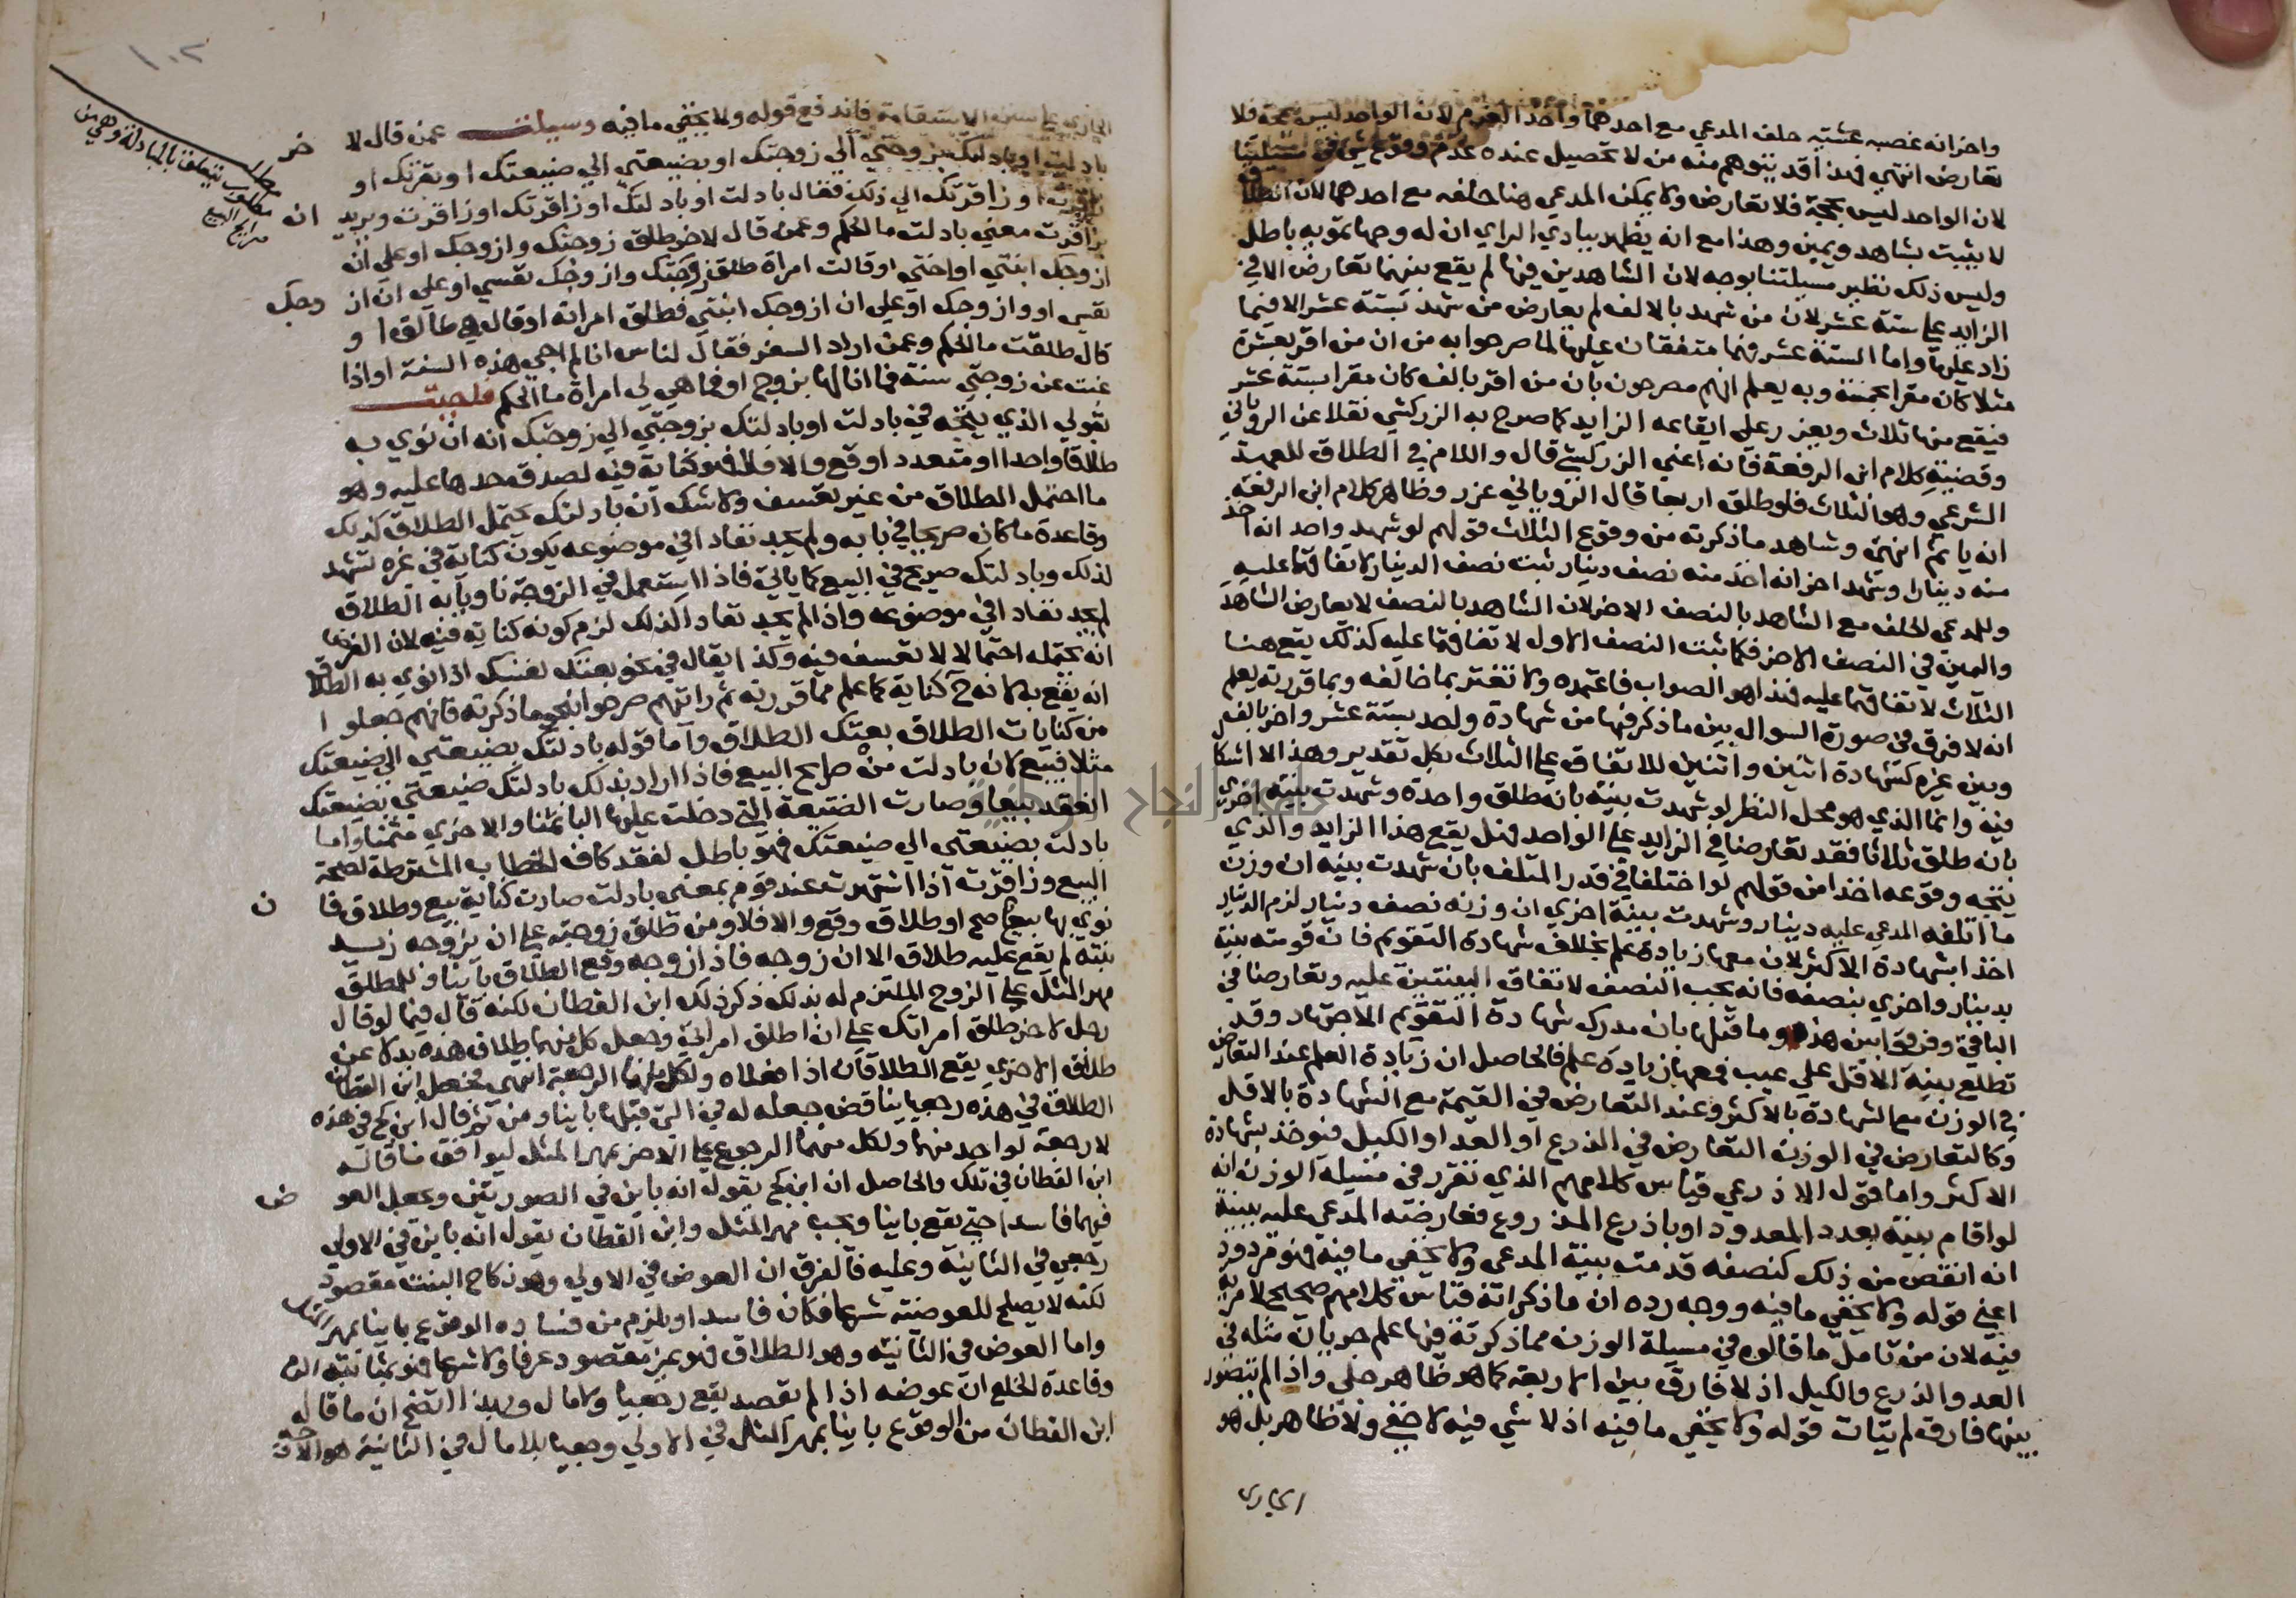 واخر انه غصبه عشية حلف المدعي مع احدهما واخذ الغرم لان الواحد ليس بحجة فلا
تعارض انتهي فهذا قد يتوهم منه من لا تحصيل عنده عدم وقوع شي في مسيلتنا
لان الواحد ليس بحجة فلا تعارض ولا يمكن المدعي هنا حلفه مع احدهما لان الطلاق
لا يثبت بشاهد ويمين وهذا مع انه يظهر ببادي الراي ان له وجها تمويه باطل
وليس ذلك نظير مسيلتنا بوجه لان الشاهدين فيها لم يقع بينهما تعارض الا في
الزايد علي ستة عشر لان من شهد بالالف لم يعارض من شهد بستة عشر الا فيما
زاد عليها واما الستة عشر فهما متفقان عليها لما صرحوا به من ان من اقر بعشرة
مثلا كان مقرا بخمسة وبه يعلم انهم مصرحون بان من اقر بالف كان مقرا بستة عشر
فيقع منها ثلاث ويعزر علي ايقاعه الزايد كما صرح به الزركشي نقلا عن الروياني
وقضية كلام ابن الرفعة فانه اعني الزركشي قال واللام في الطلاق للعهد
الشرعي وهو الثلاث فلو طلق اربعا قال الروياني عزر وظاهر كلام ابن الرفعة
انه ياثم انتهي وشاهد ما ذكرته من وقوع الثلاث قولهم لو شهد واحد انه اخذ
منه دينارا وشهد اخر انه اخذ منه نصف دينار ثبت نصف الدينار لاتفاقهما عليه
وللمدعي الحلف مع الشاهد بالنصف الاخر لان الشاهد بالنصف لا يعارض الشاهد
واليمين في النصف الاخر فكما ثبت النصف الاول لاتفاقهما عليه كذلك يقع هنا
الثلاث لاتفاقهما عليه فهذا هو الصواب فاعتمده ولا تغتر بما خالفه وبما قررته يعلم
انه لا فرق في صورة السوال بين ما ذكر فيها من شهادة واحد بستة عشر واخر بالف
وبين غيره كشهادة اثنين واثنين للاتفاق علي الثلاث بكل تقدير وهذا لا اشكال
فيه وانما الذي هو محل النظر لو شهدت بينة بانه طلق واحدة وشهدت بينة اخري
بانه طلق ثلاثا فقد تعارضا في الزايد علي الواحد فهل يقع هذا الزايد والذي
يتجه وقوعه اخذا من قولهم لو اختلفا في قدر المتلف بان شهدت بينة ان وزن
ما اتلفه المدعي عليه دينار وشهدت بينة اخري ان وزنه نصف دينار لزم الدينار
اخذا بشهادة الاكثر لان معها زيادة علم بخلاف شهادة التقويم فان قومته بينة
بدينار واخري بنصفه فانه يجب النصف لاتفاق البينتين عليه وتعارضا في
الباقي وفرقوا بين هذه وما قبلها بان مدرك شهادة التقويم الاجتهاد وقد
تطلع بينة الاقل علي عيب فمعها زيادة علم فالحاصل ان زيادة العلم عند التعارض
في الوزن مع الشهادة بالاكثر وعند التعارض في القيمة مع الشهادة بالاقل
وكالتعارض في الوزن التعارض في الذرع او العد او الكيل فنوخذ بشهادة
الاكثر واما قول الاذرعي قياس كلامهم الذي تقرر في مسيلة الوزن انه
لو اقام بينة بعدد المعدود او باذرع المذروع فعارضته المدعي عليه ببينة
انه انقص من ذلك كنصفه قدمت بينة المدعي ولا يخفي ما فيه فهو مردود
اعني قوله ولا يخفي ما فيه ووجه رده ان ما ذكر انه قياس كلامهم صحيح لا مرية
فيه لان من تامل ما قالوه في مسيلة الوزن مما ذكرته فيها علم جريان مثله في
العد والذرع والكيل اذ لا فارق بين الاربعة كما هو ظاهر جلي واذا لم يتصور
بينها فارق لم يتات قوله ولا يخفي ما فيه اذ لا شي فيه لا خفي ولا ظاهر بل هو
الجاري
١٠٢
مطلب يتعلق بالمبادلة وهي من
صرايح البيع
الجاري علي سنن الاستقامة فاندفع قوله ولا يخفي ما فيه وسيلت عمن قال لاخر
بادلت او بادلتك بزوجتي الي زوجتك او بضيعتي الي ضيعتك او بقرتك او
زاقرت او زاقرتك الي ذلك فقال بادلت او بادلتك او زاقرتك او زاقرت ويريد ان
بزاقرت معني بادلت ما الحكم وعمن قال لاخر طلق زوجتك وازوجك او علي ان
ازوجك ابنتي او اختي او قالت امراة طلق زوجتك وازوجك نفسي او علي ان ازوجك
نفسي او وازوجك او علي ان ازوجك ابنتي فطلق امراته او قال هي طالق او
قال طلقت ما الحكم وعمن اراد السفر فقال لناس انا لم اجي هذه السنة او اذا
غبت عن زوجتي سنة فما انا لها بزوج او فما هي لي امراة ما الحكم فاجبت
بقولي الذي يتجه في بادلت او بادلتك بزوجتي الي زوجتك انه ان نوي به
طلاقا واحدا او متعددا وقع والا فلا فهو كناية فيه لصدق حدها عليه وهو
ما احتمل الطلاق من غير تعسف ولا شك ان بادلتك يحتمل الطلاق كذلك
وقاعدة ما كان صريحا في بابه ولم يجد نفاذا في موضوعه يكون كناية في غيره تشهد
لذلك وبادلتك صريح في البيع كما ياتي فاذا استعمل في الزوجة ناويا به الطلاق
لم يجد نفاذا في موضوعه واذا لم يجد نفاذا لذلك لزم كونه كناية فيه لان الفرض
انه يحتمله احتمالا لا تعسف فيه وكذا يقال في نحو بعتك نفسك اذا نوي به الطلاق
انه يقع به لانه ح كناية كما علم مما قررته ثم رايتهم صرحوا بنحو ما ذكرته فانهم جعلوا
من كنايات الطلاق بعتك الطلاق واما قوله بادلتك بضيعتي الي ضيعتك
مثلا فبيع لان بادلت من صرايح البيع فاذا اراد بذلك بادلتك ضيعتي بضيعتك
انعقد بيعا وصارت الضيعة التي دخلت عليها البا ثمنا والاخري مثمنا واما
بادلت بضيعتي الي ضيعتك فهو باطل لفقد كاف الخطاب المشترطة لصحة
البيع وزاقرت اذا اشتهرت عند قوم بمعني بادلت صارت كناية بيع وطلاق فان
نوي بها بيعا صح او طلاق وقع والا فلا ومن طلق زوجته علي ان يزوجه زيد
بنته لم يقع عليه طلاق الا ان زوجه فاذا زوجه وقع الطلاق باينا وللمطلق
مهر المثل علي الزوج الملتزم له بذلك ذكر ذلك ابن القطان لكنه قال فيما لو قال
رجل لاخر طلق امراتك علي ان اطلق امراتي وجعل كل منهما طلاق هذه بدلا عن
طلاق الاخري يقع الطلاقان اذا فعلاه ولكل منهما الرجعة انتهي فجعل ابن القطان
الطلاق في هذه رجعيا يناقض جعله له في التي قبلها باينا ومن ثم قال ابن كج في هذه
لا رجعة لواحد منهما ولكل منهما الرجوع علي الاخر بمهر المثل ليوافق ما قاله
ابن القطان في تلك والحاصل ان ابن كج يقول انه باين في الصورتين ويجعل العوض
فيهما فاسدا حتي يقع باينا ويجب مهر المثل وابن القطان يقول انه باين في الاولي
رجعي في الثانية وعليه فالفرق ان العوض في الاولي وهو نكاح البنت مقصود
لكنه لا يصلح للعوضية شرعا فكان فاسدا ويلزم من فساده الوقوع باينا بمهر المثل
واما العوض في الثانية وهو الطلاق فهو غير مقصود عرفا ولا شرعا فهو بمثابة الدم
وقاعدة الخلع ان عوضه اذا لم يقصد يقع رجعيا ولا مال وبهذا اتضح ان ما قاله
ابن القطان من الوقوع باينا بمهر المثل في الاولي ورجعيا بلا مال في الثانية هو الاوجه